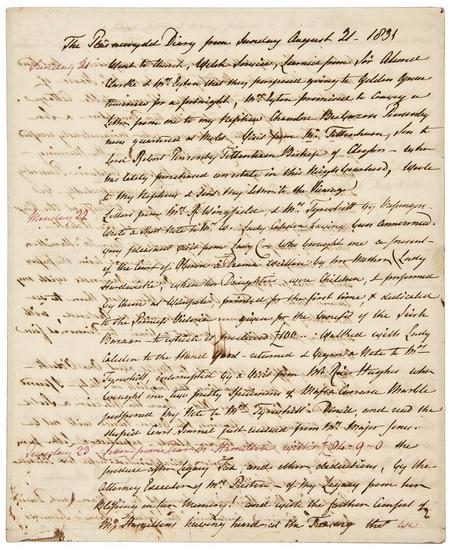 The Plasnewydd Diary from Sunday August 21. 1831
Sunday 21 Went to third, Welsh Service, Learned from Sir
Clarke & Mrs Eyton that they proposed going to Golden Grove
tomorrow for a fortnight, Mrs Eyton promised to convey a
letter from me to my Nephew Chambre Ponsonby
now quartered at Mold. Visit from Mr. Tottenham, Son to
Lord Robert Ponsonby Tottenham Bishop of Clogher - who
has lately purchased an estate in this Neighbourhood, Wrote
to my Nephew & sent my letter to the Vicarage
Monday 22 Letter from Mr. R. Wingfield & Mrs Tyrwhitt by
Wrote a short Note to Mr. W. Lady Caledon having been announced.
very pleasant visit from Lady C— who brought me a present
of the Court of Oberon a Drama written by her Mother (Lady
Hardwicke) when her Daughters were Children, & performed
by them at Wimpole, printed for the first time & dedicated
to the Princess Victoria given for the benefit of the Irish
Bazaar - to which it produced £100.. Walked with Lady
Caledon to the yard - returned & began a Note to Mrs
Tyrwhitt, interrupted by a Visit from Mr. Hughes who
brought me two pretty Specimens of Marble
postponed my Note to Mrs Tyrwhitt. Dined, and read the
stupid Court Journal just received from Mrs Major Jones.
Tuesday 23 Letter from Mr. Hamilton with £94-9-0 the
produce after Legacy Tax, and other deductions, by the
Attorney Executor of Mrs - of my Legacy from her
Blessing on her Memory! and with the further Comfort of
Mr. Hamiltons having heard at the Treasury that we